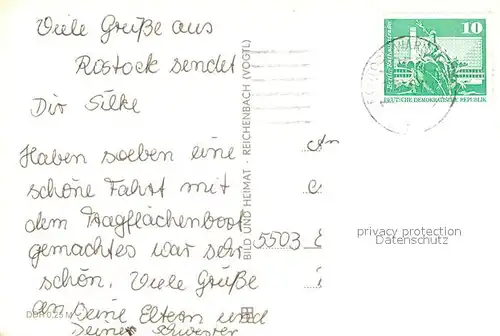 Viele Grüße aus
Rostock sendet
Dir Silke
Haben soeben eine
schöne Fahrt mit
dem Tragflächenboot
gemacht es war sehr
schön. Viele Grüße
an Deine Eltern und
Deine Schwester
BILD UND HEIMAT · REICHENBACH (VOGTL)
10
DEUTSCHE DEMOKRATISCHE REPUBLIK
An
5503
privacy protection
Datenschutz